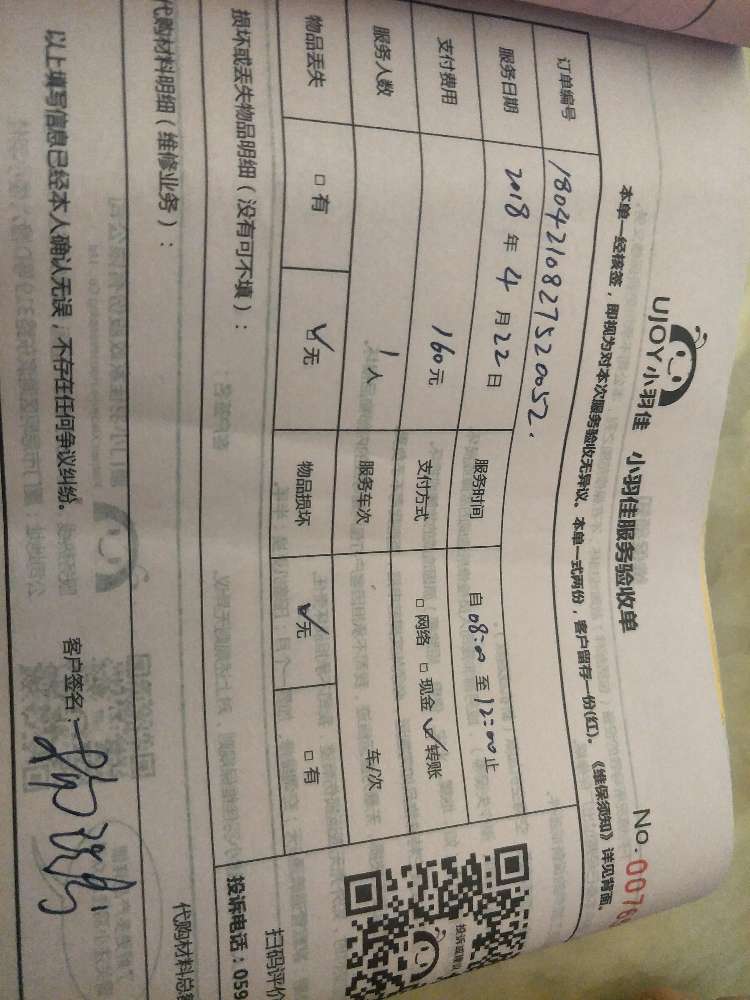 UJOY小羽佳 小羽佳服务验收单 No.
本单一经核签，即视为对本次服务验收无异议。本单一式两份，客户留存一份(红)。《维保须知》详见背面。
订单编号 1804210827520052.
服务日期 2018年4月22日 服务时间 自08:00至12:00止
支付费用 160元 支付方式 □网络 □现金 ☑转账
服务人数 1人 服务车次 车/次
物品丢失 □有 ☑无 物品损坏 ☑无 □有
损坏或丢失物品明细（没有可不填）：
扫码评价
投诉电话：059
代购材料明细（维修业务）：
代购材料总
以上填写信息已经本人确认无误，不存在任何争议纠纷。 客户签名：